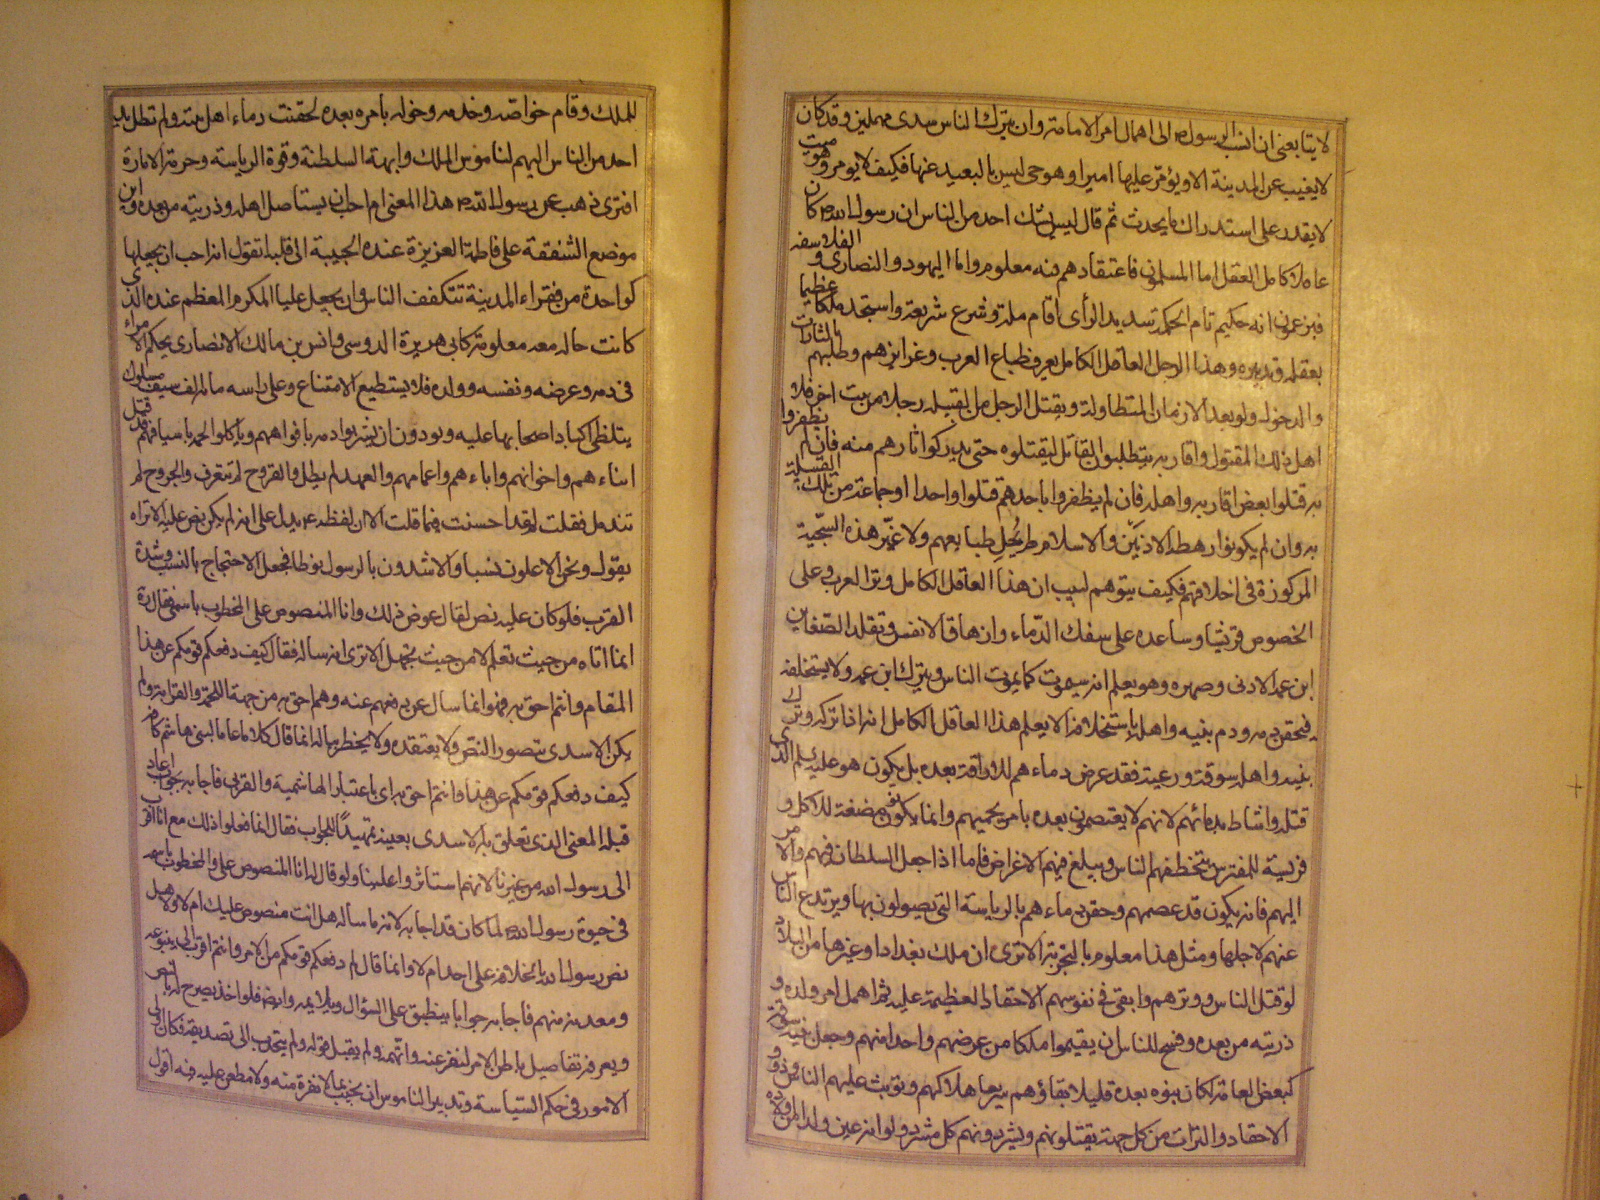 لا يتابعنى ان انسب الرسول ص الى اهمال امر الامامة وان يترك الناس سدى مهملين وقد كان
لا يغيب عن المدينة الا ويؤمر عليها اميرا وهو حى ليس بالبعيد عنها فكيف لا يؤمر وهو ميت
لا يقدر على استدراك ما يحدث ثم قال ليس يشك احد من الناس ان رسول الله ص كان
عاقلا كامل العقل اما المسلمون فاعتقادهم فيه معلوم واما اليهود والنصارى والفلاسفه
فيزعمون انه حكيم تام الحكمة سديد الرأى اقام ملة وشرع شريعة واستجد ملكا عظيما
بعقله وتدبيره وهذا الرجل العاقل الكامل يعرف طباع العرب وغرايزهم وطلبهم بالثارات
والدخول ولو بعد الازمان المتطاولة ويقتل الرجل من القبيله رجلا من بيت اخر فلا
اهل ذلك المقتول واقاربه يتطلبون القاتل ليقتلوه حتى يدركوا ثارهم منه فان لم يظفروا
به قتلوا بعض اقاربه واهله فان لم يظفروا باحدهم قتلوا واحدا او جماعة من تلك القبيلة
به وان لم يكونوا رهطه الادنين والاسلام لم يحل طبايعهم ولا غير هذه السجية
المركوزة فى اخلاقهم فكيف يتوهم لبيب ان هذا العاقل الكامل وتر العرب وعلى
الخصوص قريشا وساعده على سفك الدماء وازهاق الانفس وتقلد الضغاين
ابن عمه الادنى وصهره وهو يعلم انه سيموت كما يموت الناس ويترك ابن عمه ولا يستخلفه
فيحقن دمه ودم بنيه واهله باستخلافه الا يعلم هذا العاقل الكامل انه اذا تركه وترك
بنيه واهله سوقة ورعية فقد عرض دماءهم للاراقة بعده بل يكون هو عليه السلم الذى
قتله واشاط بدمائهم لانهم لا يعتصمون بعده بامر يحميهم وانما يكونون مضغة للاكل و
فريسة للمفترس يتخطفهم الناس ويبلغ فيهم الاغراض فاما اذا جعل السلطان فيهم والامر
اليهم فانه يكون قد عصمهم وحقن دماءهم بالرياسة التى يصولون بها ويرتدع الناس
عنهم لاجلها ومثل هذا معلوم بالتجربة الا ترى ان ملك بغداد او غيرها من البلاد
لو قتل الناس ووترهم وابقى فى نفوسهم الاحقاد العظيمة عليه ثم اهمل امر ولده و
ذريته من بعده وفسح للناس ان يقيموا ملكا من عرضهم واحدا منهم وجعل بنيه سوقة
كبعض العامة لكان بنوه بعده قليلا بقاؤهم سريعا هلاكهم ويوثب عليهم الناس ذوو
الاحقاد والترات من كل جهة يقتلونهم ويشردونهم كل مشرد ولو انه عين ولدا من اولاده
للملك وقام خواصه وخدمه وخوله بامره بعده لحقنت دماء اهل بيته ولم تطل يد
احد من الناس اليهم لناموس الملك وابهة السلطنة وقوة الرياسة وحرمة الامارة
افترى ذهب عن رسول الله ص هذا المعنى ام احب ان يستاصل اهله وذريته من بعده واين
موضع الشفقة على فاطمة العزيزة عنده الحبيبة الى قلبه اتقول انه احب ان يجعلها
كواحدة من فقراء المدينة تتكفف الناس وان يجعل عليا المكرم المعظم عنده الذى
كانت حاله معه معلومة كابى هريرة الدوسى وانس بن مالك الانصارى يحكم الامراء
فى دمه وعرضه ونفسه وولده فلا يستطيع الامتناع وعلى راسه ماية الف سيف مسلول
يتلظى اكباد اصحابها عليه ويودون ان يشربوا دمه بافواههم وياكلوا لحمه باسيافهم قد قتل
ابناءهم واخوانهم واباءهم واعمامهم والعهد لم يطل والقروح لم تتقرف والجروح لم
تندمل فقلت له لقد احسنت فيما قلت الا ان لفظه ع يدل على انه لم يكن نص عليه الا تراه
يقول ونحن الاعلون نسبا والاشدون بالرسول نوطا فجعل الاحتجاج بالنسب وشدة
القرب فلو كان عليه نص لقال عوض ذلك وانا المنصوص على المخطوب باسمى فقال ره
انما اتاه من حيث يعلم لا من حيث يجهل الا ترى انه ساله فقال كيف دفعكم قومكم عن هذا
المقام وانتم احق به فهو انما سال عن دفعهم عنه وهم احق به من جهة اللحمة والقرابة ولم
يكن الاسدى يتصور النص ولا يعتقده ولا يخطر بباله انما قال كلاما عاما لبنى هاشم كافة
كيف دفعكم قومكم عن هذا وانتم احق به اى باعتبار الهاشمية والقربى فاجابه بجواب اعاد
قبله المعنى الذى تعلق به الاسدى بعينه تمهيدا للجواب فقال انما فعلوا ذلك مع انا اقرب
الى رسول الله من غيرنا لانهم استاثروا علينا ولو قال له انا المنصوص على والمخطوب باسمى
فى حيوة رسول الله لما كان قد اجابه لانه ما ساله هل انت منصوص عليك ام لا ولا هل
نص رسول الله بالخلافة على احد ام لا وانما قال لم دفعكم قومكم من الامر وانتم اقرب الى ينبوعه
ومعدنه منهم فاجابه جوابا ينطبق على السؤال ويلايمه وايضا فلو اخذ يصرح له بالنص
ويعرفه تفاصيل باطن الامر لنفر عنه واتهمه ولم يقبل قوله ولم ينجذب الى تصديقه فكان اولى
الامور فى حكم السياسة وتدبير الناموس ان يجيب بما لا نفرة منه ولا مطعن عليه فيه اقول